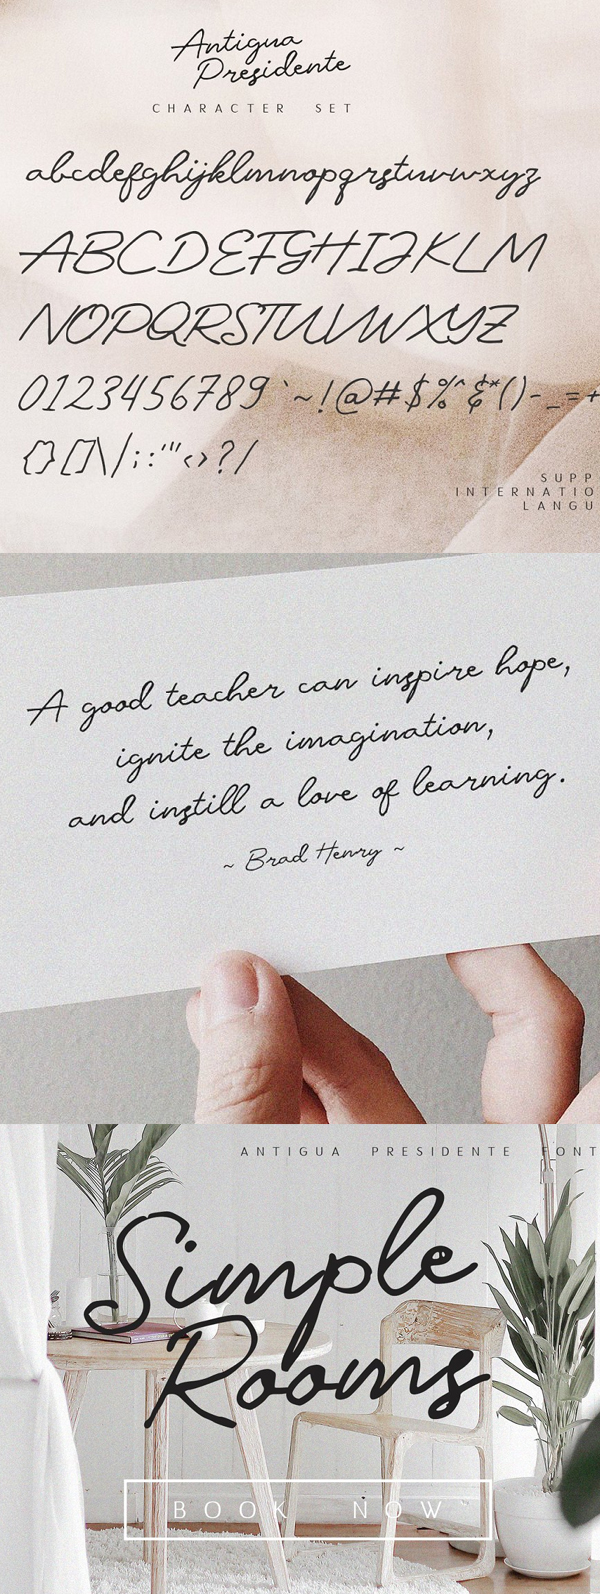 Antigua
Presidente
CHARACTER SET
abcdefghijklmnopqrstuvwxyz
ABCDEFGHIJKLM
NOPQRSTUVWXYZ
0123456789`~!@#$%^&*()-_=+
{}[]\|;:'"‹›?/
SUPP
INTERNATIO
LANGU
A good teacher can inspire hope,
ignite the imagination,
and instill a love of learning.
~ Brad Henry ~
ANTIGUA PRESIDENTE FONT
Simple
Rooms
BOOK NOW